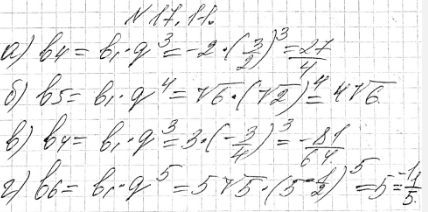 N 17.11.
а) b4 = b1·q^3 = -2·(3/2)^3 = 27/4
б) b5 = b1·q^4 = √6·(√2)^4 = 4√6.
в) b4 = b1·q^3 = 3·(-3/4)^3 = -81/64
г) b6 = b1·q^5 = 5√5·(5^-1/2)^5 = 5^-1 = 1/5.